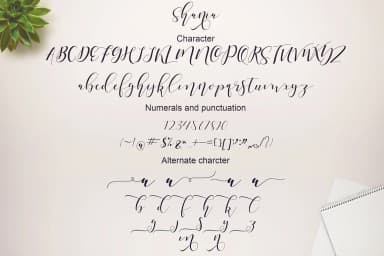 Shania
Character
ABCDEFGHIJKLMNOPQRSTUVWXYZ
abcdefghijklmnopqrstuvwxyz
Numerals and punctuation
1234567890
Alternate charcter
a a a a
b d f h k l
y j g y z
m n